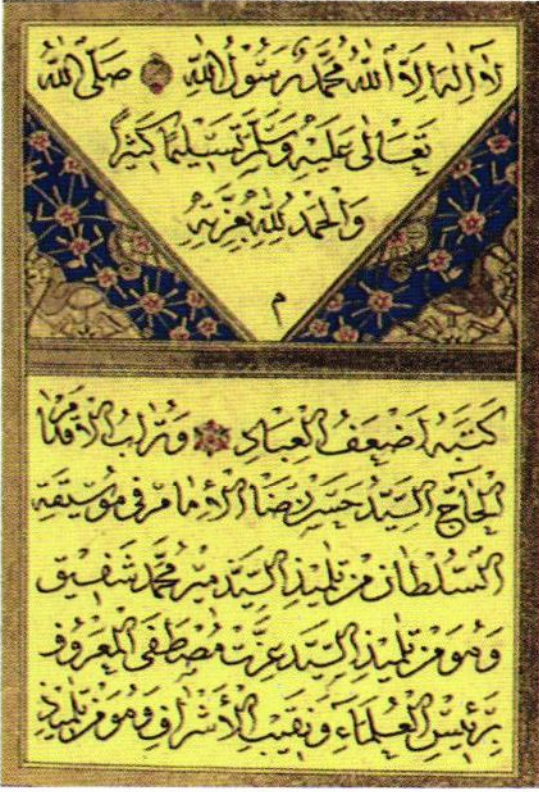 لَا إِلٰهَ إِلَّا اللّٰهُ مُحَمَّدٌ رَسُولُ اللّٰهِ صَلَّى اللّٰهُ
تَعَالٰى عَلَيْهِ وَسَلَّمَ تَسْلِيمًا كَثِيرًا
وَالْحَمْدُ لِلّٰهِ بِعِزَّتِهِ
م
كَتَبَهُ أَضْعَفُ الْعِبَادِ وَتُرَابُ الْأَقْدَامِ
الْحَاجّ السَّيِّدُ حَسَن رِضَا الْأِمَامُ فِي مُوسِيقَةِ
السُّلْطَان مِنْ تِلْمِيذِ السَّيِّدِ مِير مُحَمَّد شَفِيق
وَهُوَ مِنْ تِلْمِيذِ السَّيِّد عِزَّت مُصْطَفَى الْمَعْرُوفِ
بِرَئِيسِ الْعُلَمَاءِ وَنَقِيبِ الْأَشْرَافِ وَهُوَ مِنْ تِلْمِيذِ